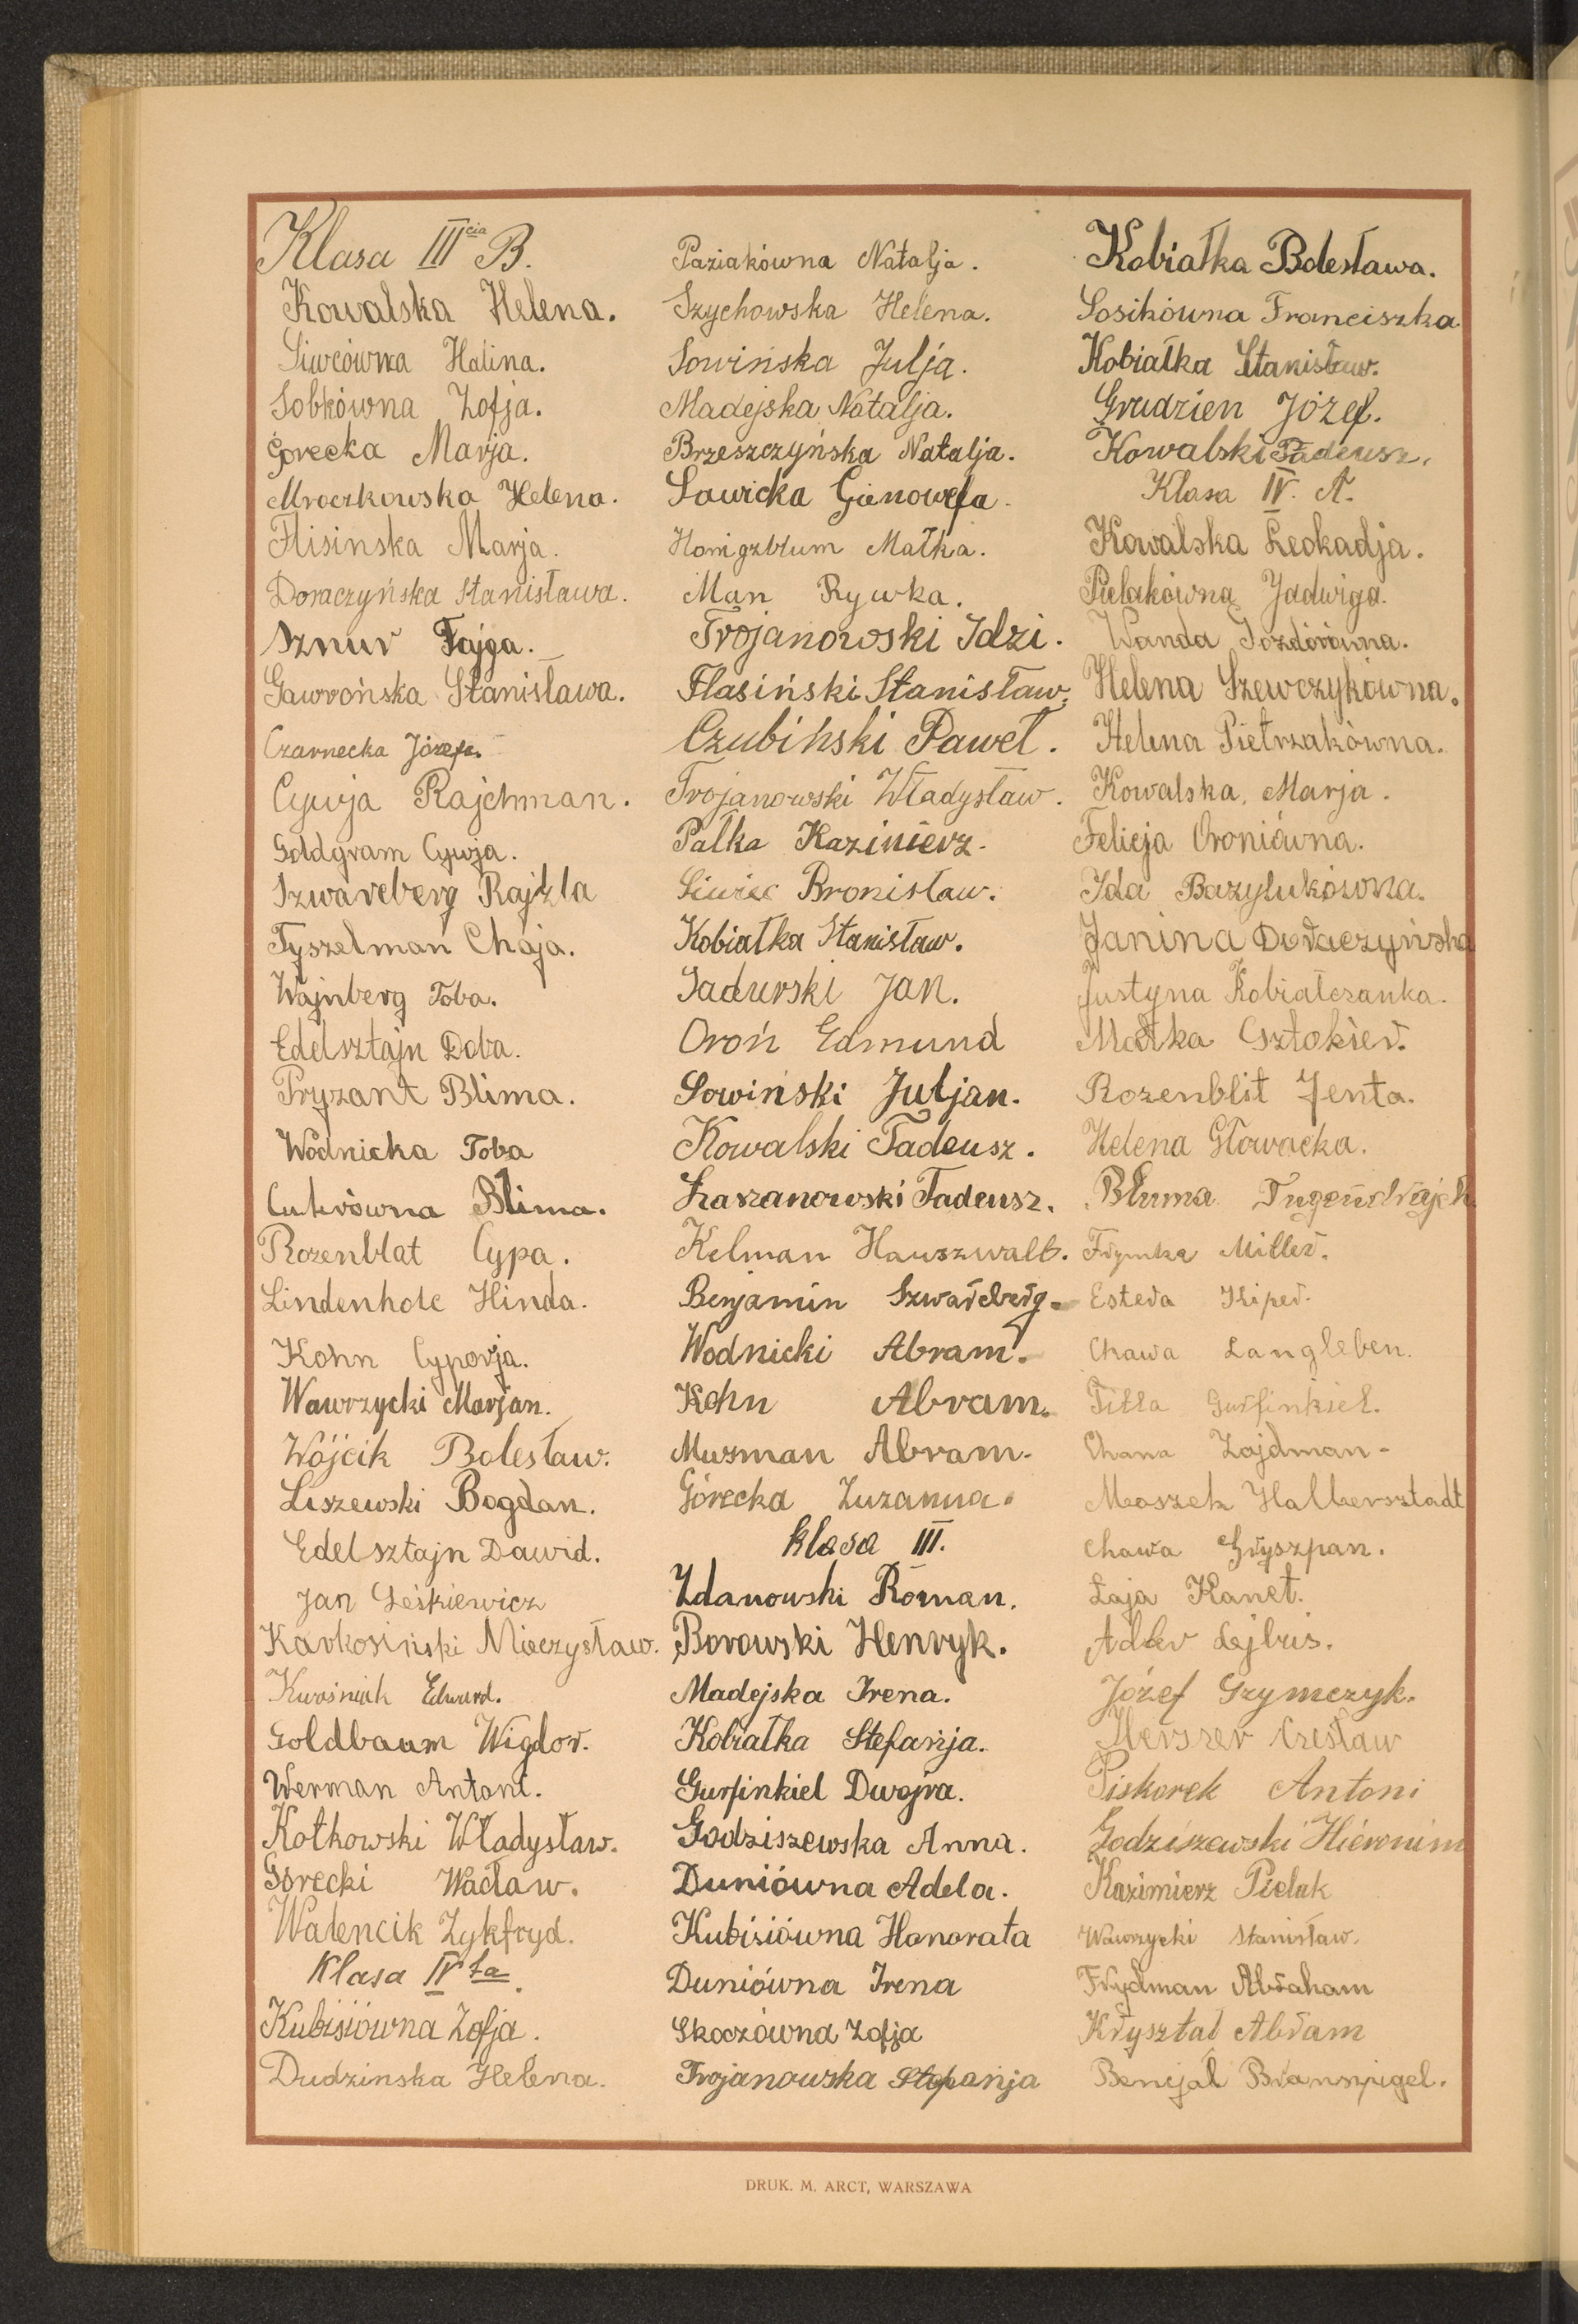 Klasa III cia B.
Kowalska Helena.
Siwcówna Halina.
Sobkówna Zofja.
Górecka Marja.
Mroczkowska Helena.
Flisinska Marja.
Doraczyńska Stanisława.
Sznur Fajga.
Gawrońska Stanisława.
Czarnecka Józefa.
Cywja Rajchman.
Goldgram Cywja.
Szwarcberg Rajzla
Tyszelman Chaja.
Wajnberg Toba.
Edelsztajn Doba.
Pryzant Blima.
Wodnicka Toba
Cukrówna Blima.
Rozenblat Cypa.
Lindenholc Hinda.
Kohn Cyporja.
Wawrzycki Marjan.
Wójcik Bolesław.
Liszewski Bogdan.
Edelsztajn Dawid.
Jan Leśkiewicz
Karkosiński Mieczysław.
Kwaśniak Edward.
Goldbaum Wigdor.
Werman Antoni.
Kotkowski Władysław.
Górecki Wacław.
Walencik Zykfryd.
Klasa IV ta.
Kubisiówna Zofja.
Dudzinska Helena.
Paziakówna Natalja.
Szychowska Helena.
Sowińska Julja.
Madejska Natalja.
Brzeszczyńska Natalja.
Sawicka Gienowefa.
Honigzblum Małka.
Man Rywka.
Trojanowski Idzi.
Flasiński Stanisław.
Czubiński Paweł.
Trojanowski Władysław.
Pałka Kazimierz.
Siwiec Bronisław.
Kobiałka Stanisław.
Sadurski Jan.
Oroń Edmund
Sowiński Juljan.
Kowalski Tadeusz.
Łaszanowski Tadeusz.
Kelman Hauszwalb.
Benjamin Szwarcberg.
Wodnicki Abram.
Kohn Abram.
Muzman Abram.
Górecka Zuzanna.
klasa III.
Zdanowski Roman.
Borowski Henryk.
Madejska Irena.
Kobiałka Stefanja.
Gurfinkiel Dwojra.
Godziszewska Anna.
Duniówna Adela.
Kubisiówna Honorata
Duniówna Irena
Skoczówna Zofja
Trojanowska Stefanja
Kobiałka Bolesława.
Sosikówna Franciszka
Kobiałka Stanisław.
Grudzien Józef.
Kowalski Tadeusz.
Klasa IV. A.
Kowalska Leokadja.
Pielakówna Jadwiga.
Wanda Jozdórówna.
Helena Szewczykówna.
Helena Pietrzakówna.
Kowalska Marja.
Felicja Oroniówna.
Ida Bazylukówna.
Janina Doraczyńska
Justyna Kobiałczanka.
Małka Csztokier.
Rozenblit Jenta.
Helena Głowacka.
Bluma Tugendrajch
Frymka Miller.
Estera Kiper.
Chawa Langleben.
Tilla Gurfinkiel.
Chana Zajdman.
Moszek Halbersztadt
Chawa Gryszpan.
Łaja Kanet.
Adler Lejbus.
Józef Szymczyk.
Herszer Czesław
Piskorek Antoni
Godziszewski Hieronim
Kazimierz Pielak
Wawrzycki Stanisław.
Frydman Abraham
Kryształ Abram
Bencjał Branszpigel.
DRUK. M. ARCT, WARSZAWA